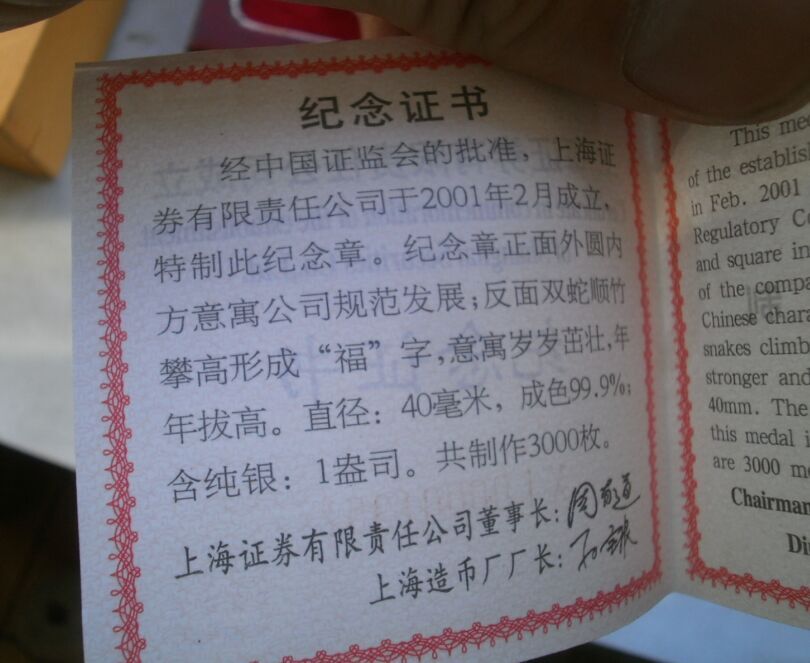 纪念证书
经中国证监会的批准，上海证
券有限责任公司于2001年2月成立，
特制此纪念章。纪念章正面外圆内
方意寓公司规范发展；反面双蛇顺竹
攀高形成“福”字，意寓岁岁茁壮，年
年拔高。直径：40毫米，成色99.9%；
含纯银：1盎司。共制作3000枚。
上海证券有限责任公司董事长：
上海造币厂厂长：
This
of the
in Feb. 2001
Regulatory
and square in
of the
Chinese
snakes
stronger and
40mm. The
this medal
are 3000